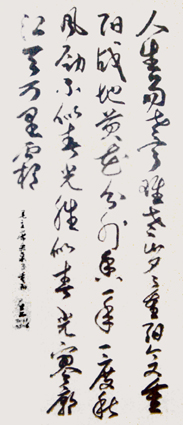 人生易老天难老岁々重阳今又重
阳战地黄花分外香一年一度秋
风劲不似春光胜似春光寥廓
江天万里霜